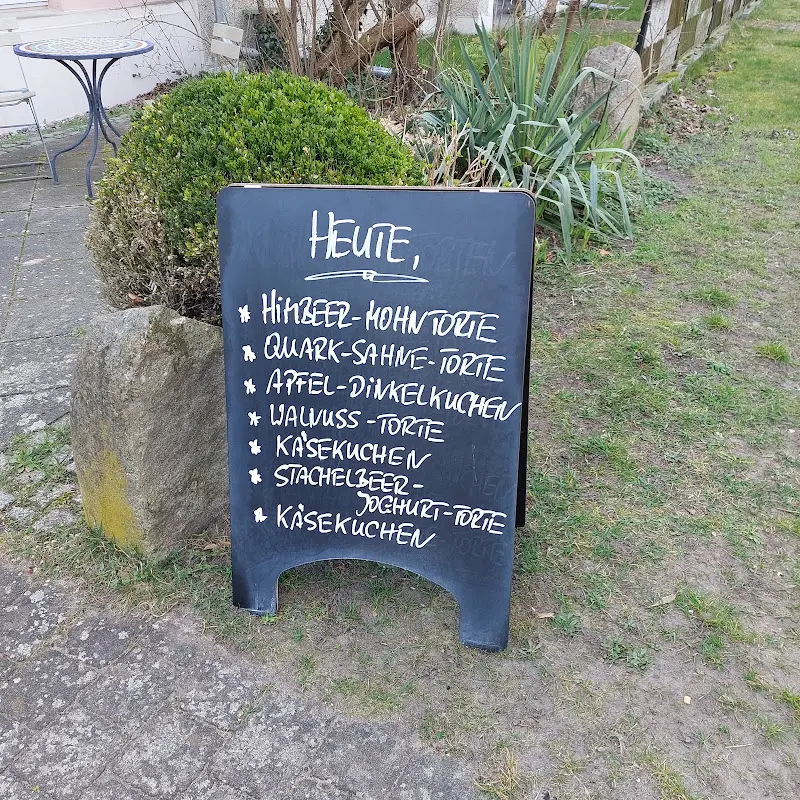 HEUTE,
* HIMBEER-MOHNTORTE
* QUARK-SAHNE-TORTE
* APFEL-DINKELKUCHEN
* WALNUSS-TORTE
* KÄSEKUCHEN
* STACHELBEER-
JOGHURT-TORTE
* KÄSEKUCHEN